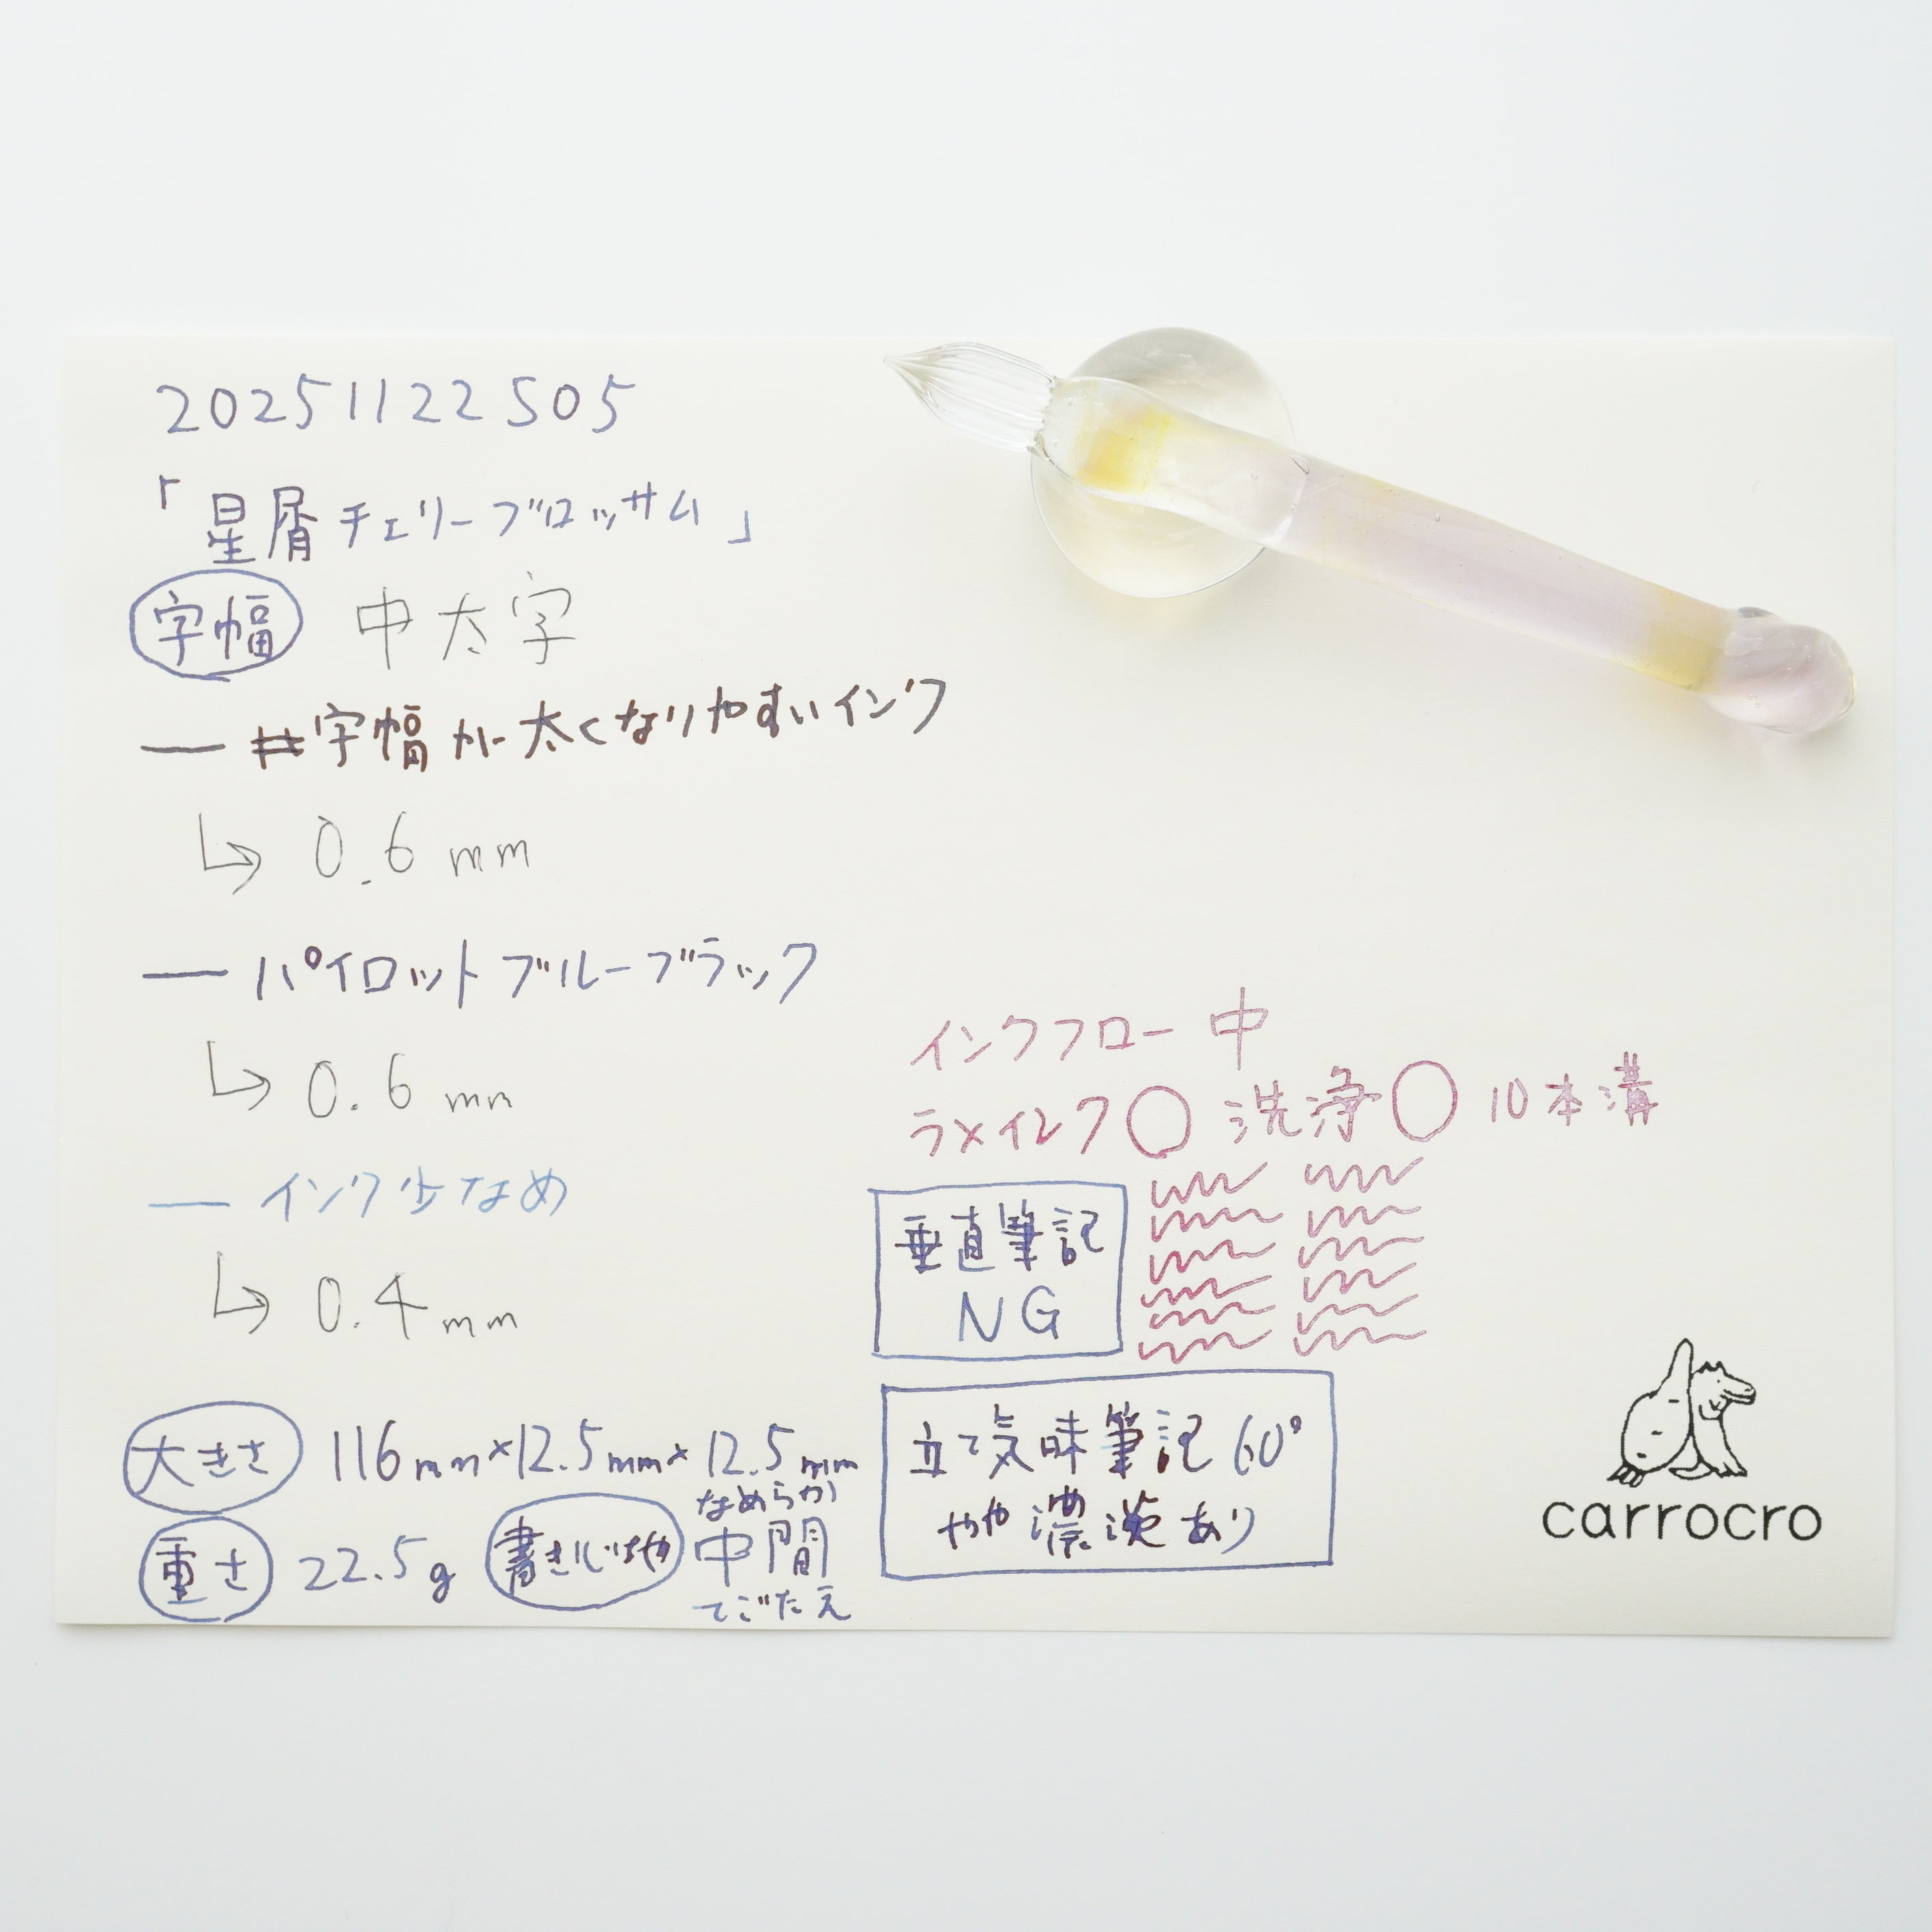 20251122S05
「星屑チェリーブロッサム」
字幅 中太字
— #字幅が太くなりやすいインク
↳ 0.6mm
— パイロットブルーブラック
↳ 0.6mm
— インク少なめ
↳ 0.4mm
大きさ 116mm×12.5mm×12.5mm
重さ 22.5g 書き心地 なめらか
中間
てごたえ
インクフロー 中
ラメインク○ 洗浄○ 10本溝
垂直筆記
NG
立て気味筆記60°
やや濃淡あり
carrocro